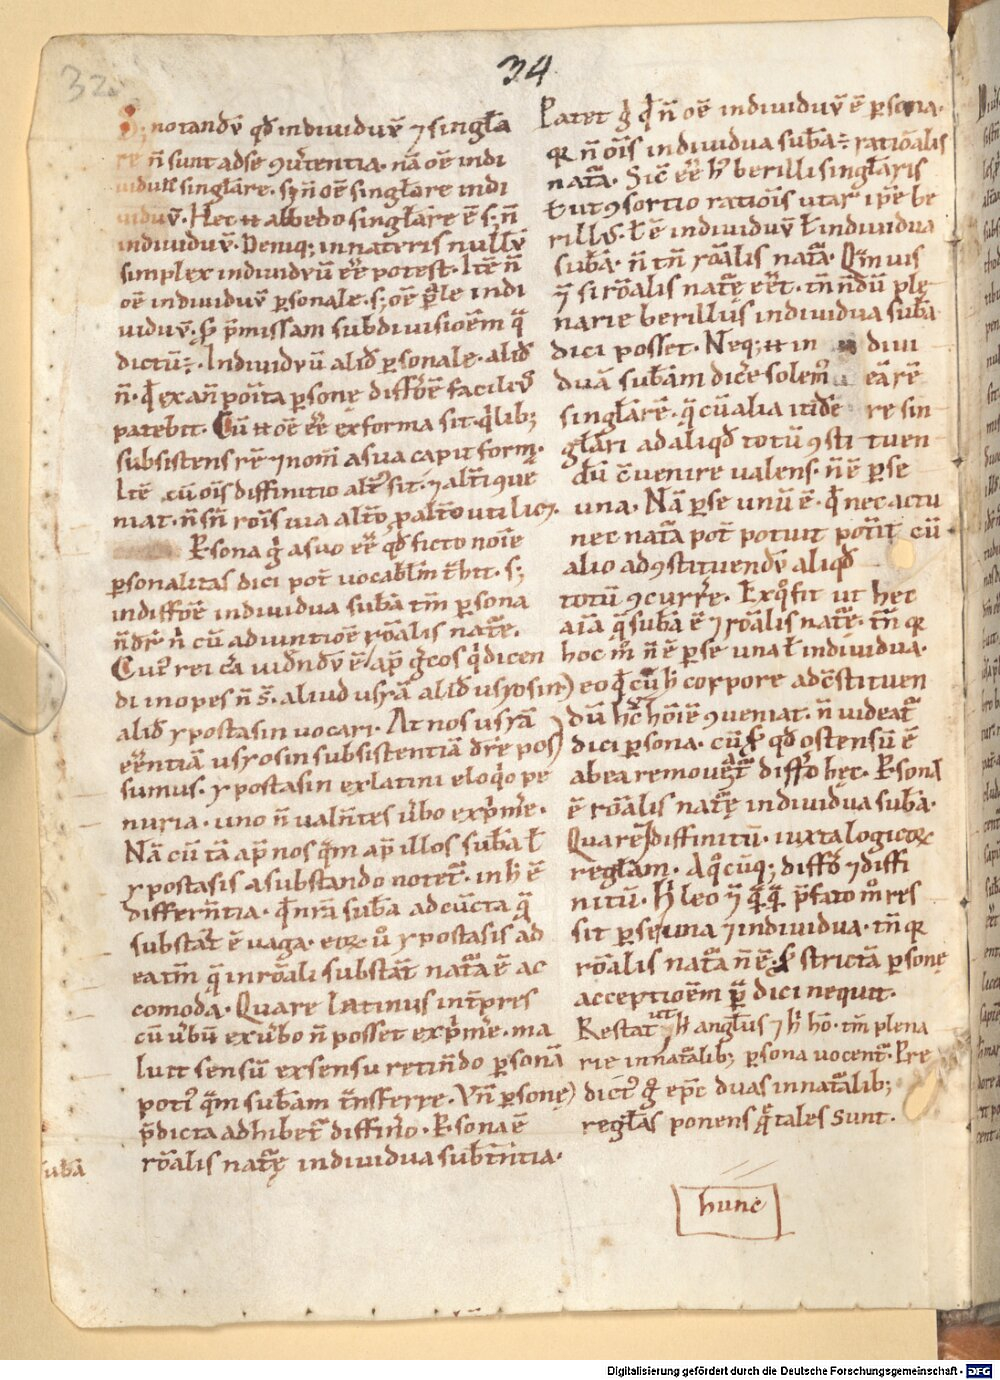 32
34
S; notandū qd individuū ⁊ singła
re ñ sunt ad se ꝯv̄tentia. nā oē indi
viduū singlare. s; ñ oē singłare indi
viduū. Hec .n. albedo singłare ē s; ñ
individuū. Deniq; in nat̄eris nullū
simplex individuū eē potest. Itē ñ
oē individuū ꝑsonale. s; oē ꝑ̄le indi
viduū. sꝫ p̄missam subdivisioēm q̄
dictū ÷. Individuū aliđ ꝑsonale. aliđ
ñ. qđ ex añ poīta ꝑsonę diff̄oē faciliꝰ
patebit. Cū .n. oē eē ex forma sit. q̇lib;
subsistens rē ⁊ nom̄ a sua capit form̄.
Itē cū oīs diffinitio alt̄ sit. ⁊ alt̄i ꝯve
niat. ñ sñ roīs via alt̄o ꝓ alt̄o utilicꝫ.
Ꝑsona ġ a suo eē qđ ficto noīe
ꝑsonalitas dici pot̄ vocabłm t̄hit. s;
indiff̄oē individua sub̄a tm̄ ꝑsona
ñ dr̄ ñ cū adiunctiōe rōalis nat̄ę.
Cuiꝰ rei c̄a vidn̄dū ē ap̄ gcos q̇ dicen
di inopes ñ s̄. aliud usyā aliđ usyosin
aliđ ypostasin vocari. At nos usyā
eēntiā usyosin subsistentiā dr̄e pos
sumus. ypostasin ex latini eloq̇o pe
nuria. uno ñ valn̄tes v̄bo exp̄me.
Nā cū tā ap̄ nos q̄m ap̄ illos sub̄a ł
ypostasis a substando notet̄. in h̄ ē
differn̄tia. qđ nr̄a sub̄a ad cūcta q̄
substāt ē vaga. eoꝝ v̊ ypostasis ad
ea tm̄ q̄ in rōali substāt nat̄a ē ac
comoda. Quare Latinus int̄pres
cū v̄bū ex v̄bo ñ posset exp̄me. ma
luit sensū ex sensu retin̄do ꝑsonā
potiꝰ q̄m sub̄am t̄nsferre. Vn̄ ꝑsonę
p̄dicta adhibet̄ diffin̄o. Ꝑsona ē
rōalis nat̄ę individua subt̄ntia.
sub̄a
Patet ġ qđ ñ oē individuū ē ꝑsona.
qꝛ ñ oīs individua sub̄a ÷ ratiōalis
nat̄a. Sic̄ eē h̄ berilli singłaris
t̄ ut ꝯsortio ratiōis utar̄ ip̄e be
rillꝰ. ł ē individuū ł individua
sub̄a. ñ tñ rōalis nat̄a. Q̄mvis
⁊ si rōalis nat̄ę eēt. tñ ñdū ple
narie berillus individua sub̄a
dici posset. Neq; .n. in divi
duā sub̄am dice solemꝰ eā rē
singłarē. q̄ cū alia itidē re sin
głari ad aliqđ totū ꝯsti tuen
dū c̄venire valens. ñ ē ꝑ se
una. Nā ꝑ se unū ē. qđ nec actu
nec nat̄a pot̄ potuit potit̄ cū
alio ad ꝯstituendū aliqđ
totū ꝯcurre. Ex q̊ fit ut hec
aīa q̄ sub̄a ē ⁊ rōalis nat̄ę. tñ qꝛ
hoc m̊ ñ ē ꝑ se una ł individua.
eo qđ cū h̄ corpore ad c̄stituen
dū hc̄ hōiē ꝯveniat. ñ videat̄
dici ꝑsona. cū sꝫ qđ ostensū ē
ab ea removeat̄ diff̄o hęc. Ꝑsona
ē rōalis nat̄ę individua sub̄a.
Quare ⁊ diffinitū. iuxta logicoꝝ
regłam. A q̊cūq; diff̄o ⁊ diffi
nitū. H̄ leo ⁊ q̄q̄ p̄fato m̊ res
sit ꝑ se una ⁊ individua. tñ qꝛ
rōalis nat̄a ñ ē. sꝫ strictā ꝑsonę
acceptioēm ꝑ̄ dici nequit.
Restat ut h̄ angłus ⁊ h̄ hō. tm̄ plena
rie in nat̄alib; ꝑsona vocent̄. Pre
dictꝰ ġ ep̄c duas in nat̄alib;
regłas ponens q̄ tales sunt.
hunc
Digitalisierung gefördert durch die Deutsche Forschungsgemeinschaft - DFG